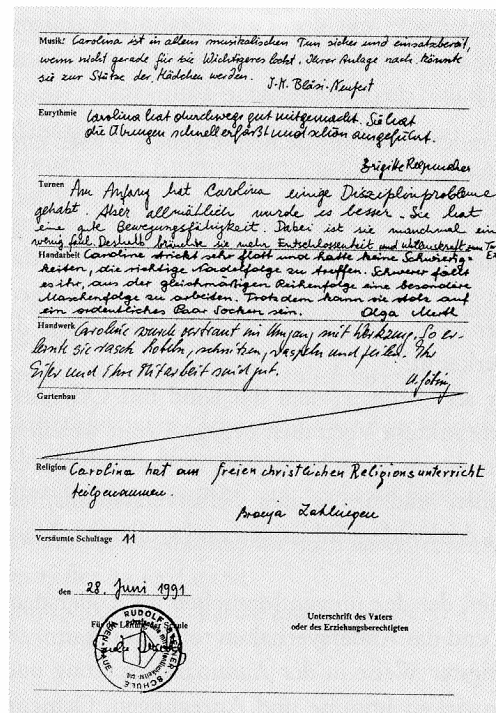 Musik: Carolina ist in allem musikalischen Tun sicher und einsatzbereit,
wenn nicht gerade für sie Wichtigeres lockt. Ihrer Anlage nach könnte
sie zur Stütze der Mädchen werden.
J.-K. Bläsi-Neufert
Eurythmie Carolina hat durchwegs gut mitgemacht. Sie hat
die Übungen schnell erfaßt und schön ausgeführt.
Brigitte
Turnen Am Anfang hat Carolina einige Disziplinprobleme
gehabt. Aber allmählich wurde es besser. Sie hat
eine gute Bewegungsfähigkeit. Dabei ist sie manchmal ein
wenig faul. Deshalb bräuchte sie mehr Entschlossenheit und
Handarbeit Caroline strickt sehr flott und hatte keine Schwierig-
keiten, die richtige Nadelfolge zu treffen. Schwerer fällt
es ihr, aus der gleichmäßigen Reihenfolge eine besondere
Maschenfolge zu arbeiten. Trotzdem kann sie stolz auf
ein ordentliches Paar Socken sein. Olga
Handwerk Caroline wurde vertraut im Umgang mit Werkzeug. So er-
lernte sie rasch hobeln, schnitzen, raspeln und feilen. Ihr
Eifer und Ihre Mitarbeit sind gut.
Gartenbau
Religion Carolina hat am freien christlichen Religionsunterricht
teilgenommen.
Versäumte Schultage 11
den 28. Juni 1991
Für die
Unterschrift des Vaters
oder des Erziehungsberechtigten
RUDOLF STEINER-SCHULE